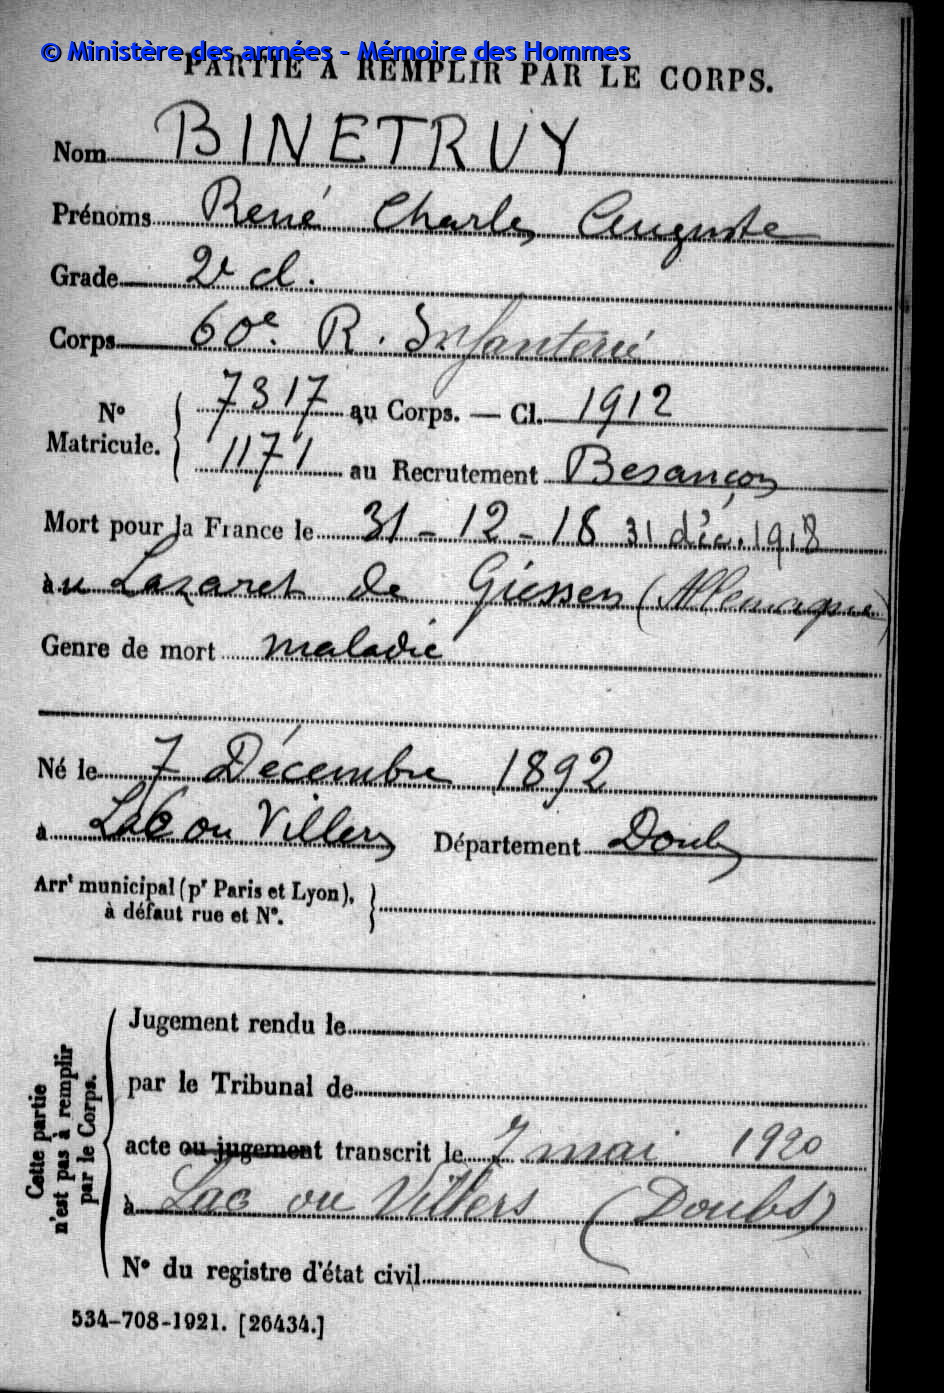 © Ministère des armées - Mémoire des Hommes
PARTIE A REMPLIR PAR LE CORPS.
Nom BINETRUY
Prénoms René Charles Auguste
Grade 2e cl.
Corps 60e. R. Infanterie
No Matricule. 7317 au Corps. — Cl. 1912
1171 au Recrutement Besançon
Mort pour la France le 31 - 12 - 18 31 déc. 1918
à u Lazaret de Giessen (Allemagne)
Genre de mort maladie
Né le 7 Décembre 1892
à Lac ou Villers Département Doubs
Arrt municipal (pr Paris et Lyon),
à défaut rue et No.
Cette partie n'est pas à remplir par le Corps.
Jugement rendu le
par le Tribunal de
acte ou jugement transcrit le 7 mai 1920
à Lac ou Villers (Doubs)
No du registre d'état civil
534-708-1921. [26434.]